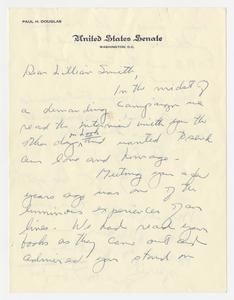 PAUL H. DOUGLAS
United States Senate
WASHINGTON, D.C.
Dear Lillian Smith,
In the midst of
a demanding campaign we
read the interview with you the
other day and wanted to send
our love and homage.
Meeting you a few
years ago was one of the
luminous experiences of our
lives. We had read your
books as they came out and
admired your stand on